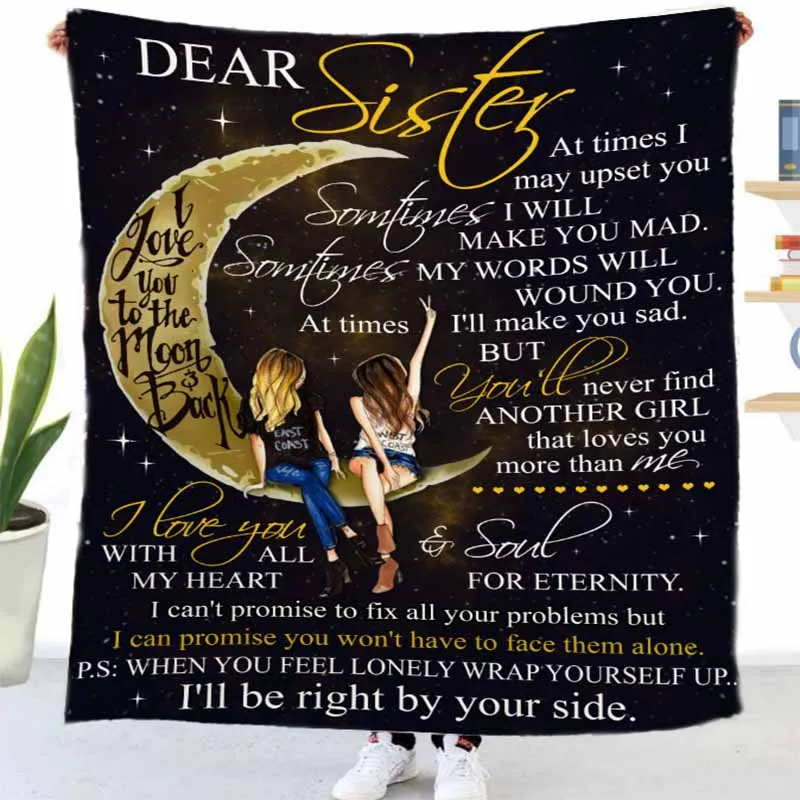 DEAR Sister
At times I
may upset you
Somtimes I WILL
MAKE YOU MAD.
Somtimes MY WORDS WILL
WOUND YOU.
At times I'll make you sad.
BUT
You'll never find
ANOTHER GIRL
that loves you
more than me
I
Love
You
to the
Moon
&
Back
EAST
COAST
WEST
COAST
I love you
WITH ALL
MY HEART
& Soul
FOR ETERNITY.
I can't promise to fix all your problems but
I can promise you won't have to face them alone.
P.S: WHEN YOU FEEL LONELY WRAP YOURSELF UP..
I'll be right by your side.